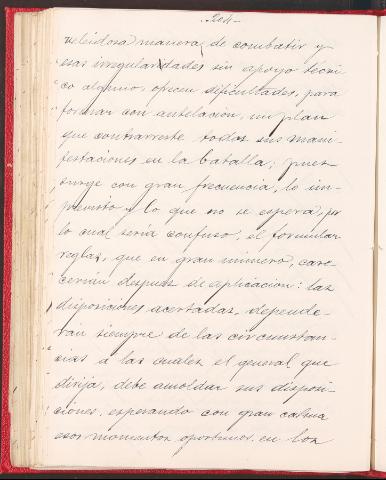 -204-
veleidosa manera de combatir y
esas irregularidades sin apoyo técni-
co alguno, ofrecen dificultades, para
formar con antelacion, un plan
que contrarreste todas sus mani-
festaciones en la batalla; pues
surge con gran frecuencia, lo im-
previsto y lo que no se espera, por
lo cual sería confuso, el formular
reglas, que en gran número, care-
cerian despues de aplicacion: las
disposiciones acertadas, depende-
ran siempre de las circunstan-
cias a las cuales el general que
dirija, debe amoldar sus disposi-
ciones, esperando con gran calma
esos momentos oportunos, en los